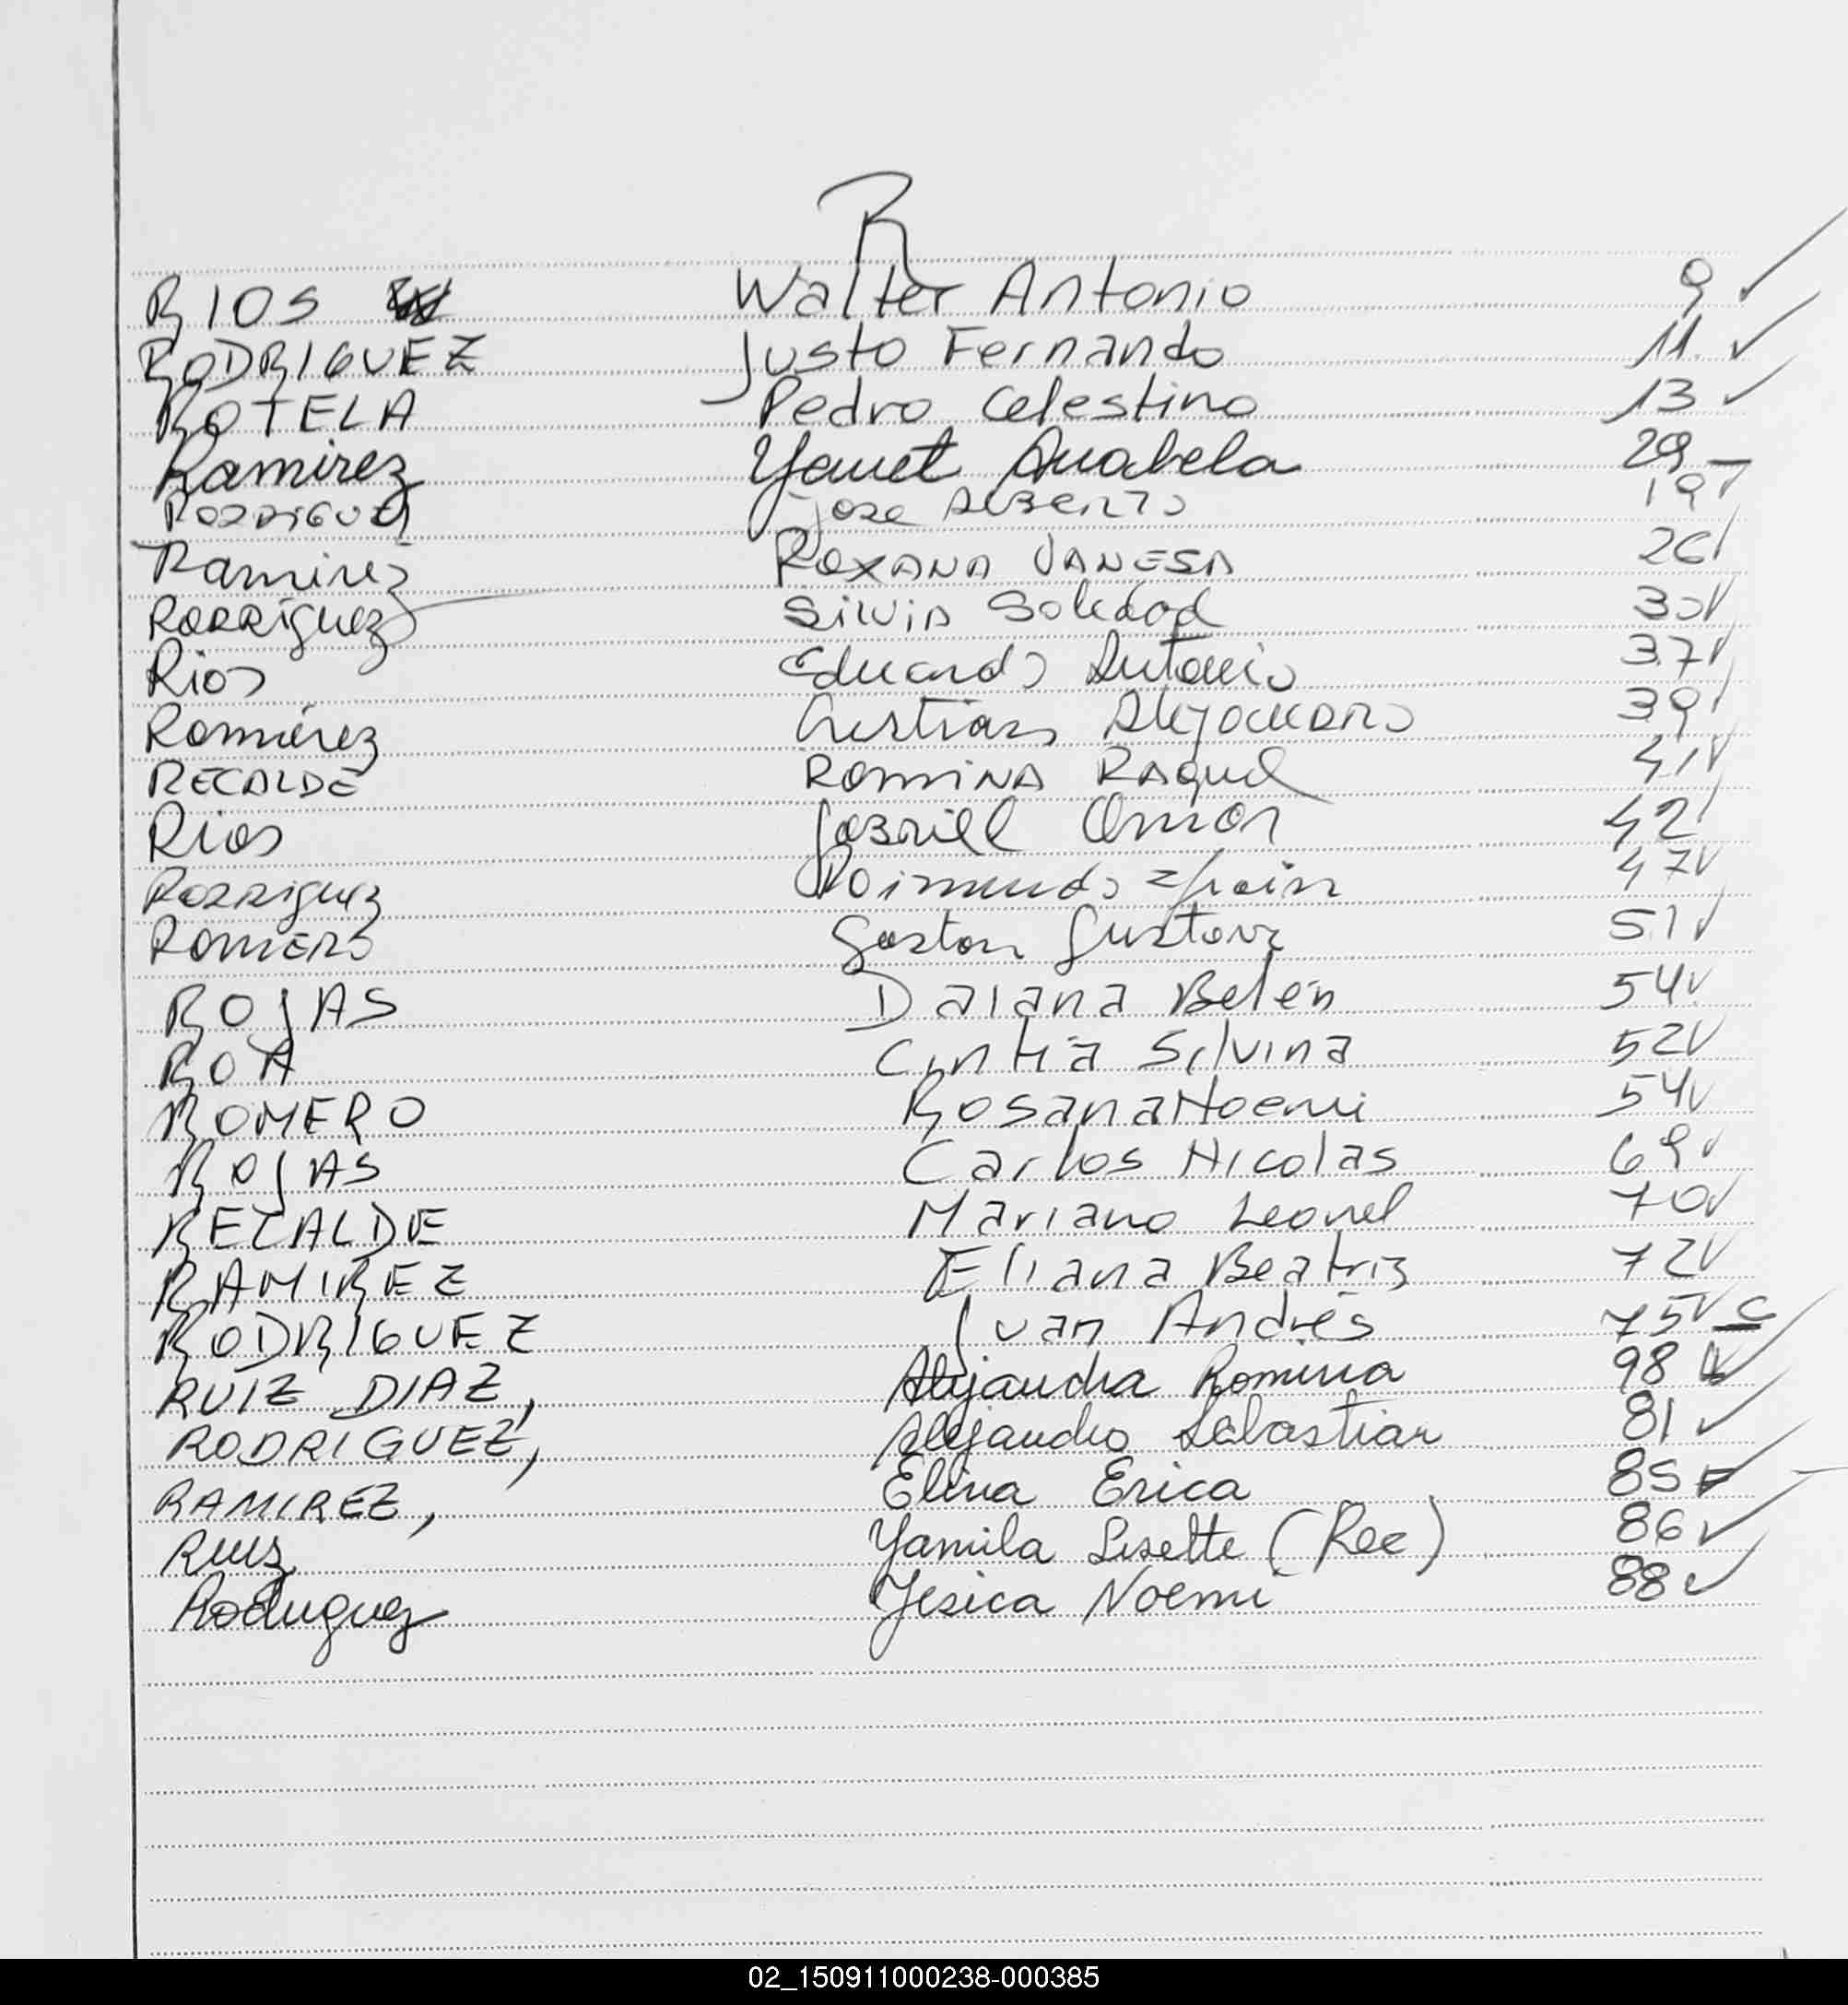 R
RIOS Walter Antonio 9 ✓
RODRIGUEZ Justo Fernando 11 ✓
ROTELA Pedro Celestino 13 ✓
Ramirez Yanet Anabela 29 –
RODRIGUEZ Jose ALBERTO 19 ✓
Ramirez ROXANA VANESA 26 ✓
RODRIGUEZ SILVIA Soledad 30 ✓
Rios Eduardo Antonio 37 ✓
Ramirez Cristian Alejandro 39 ✓
RECALDE ROMINA RAQUEL 41 ✓
Rios Gabriel Omar 42 ✓
Rodriguez Raimundo Efrain 47 ✓
ROMERO Gaston Gustavo 51 ✓
ROJAS Daiana Belén 54 ✓
ROA Cintia Silvina 52 ✓
ROMERO Rosana Noemi 54 ✓
ROJAS Carlos Nicolas 69 ✓
RECALDE Mariano Leonel 70 ✓
RAMIREZ Eliana Beatriz 72 ✓
RODRIGUEZ Juan Andrés 75 ✓ C
RUIZ DIAZ, Alejandra Romina 98 ✓
RODRIGUEZ, Alejandro Sebastian 81 ✓
RAMIREZ, Elina Erica 85 ✓
Ruiz Yamila Lisette (Rec) 86 ✓
Rodriguez Yesica Noemi 88 ✓
02_150911000238-000385